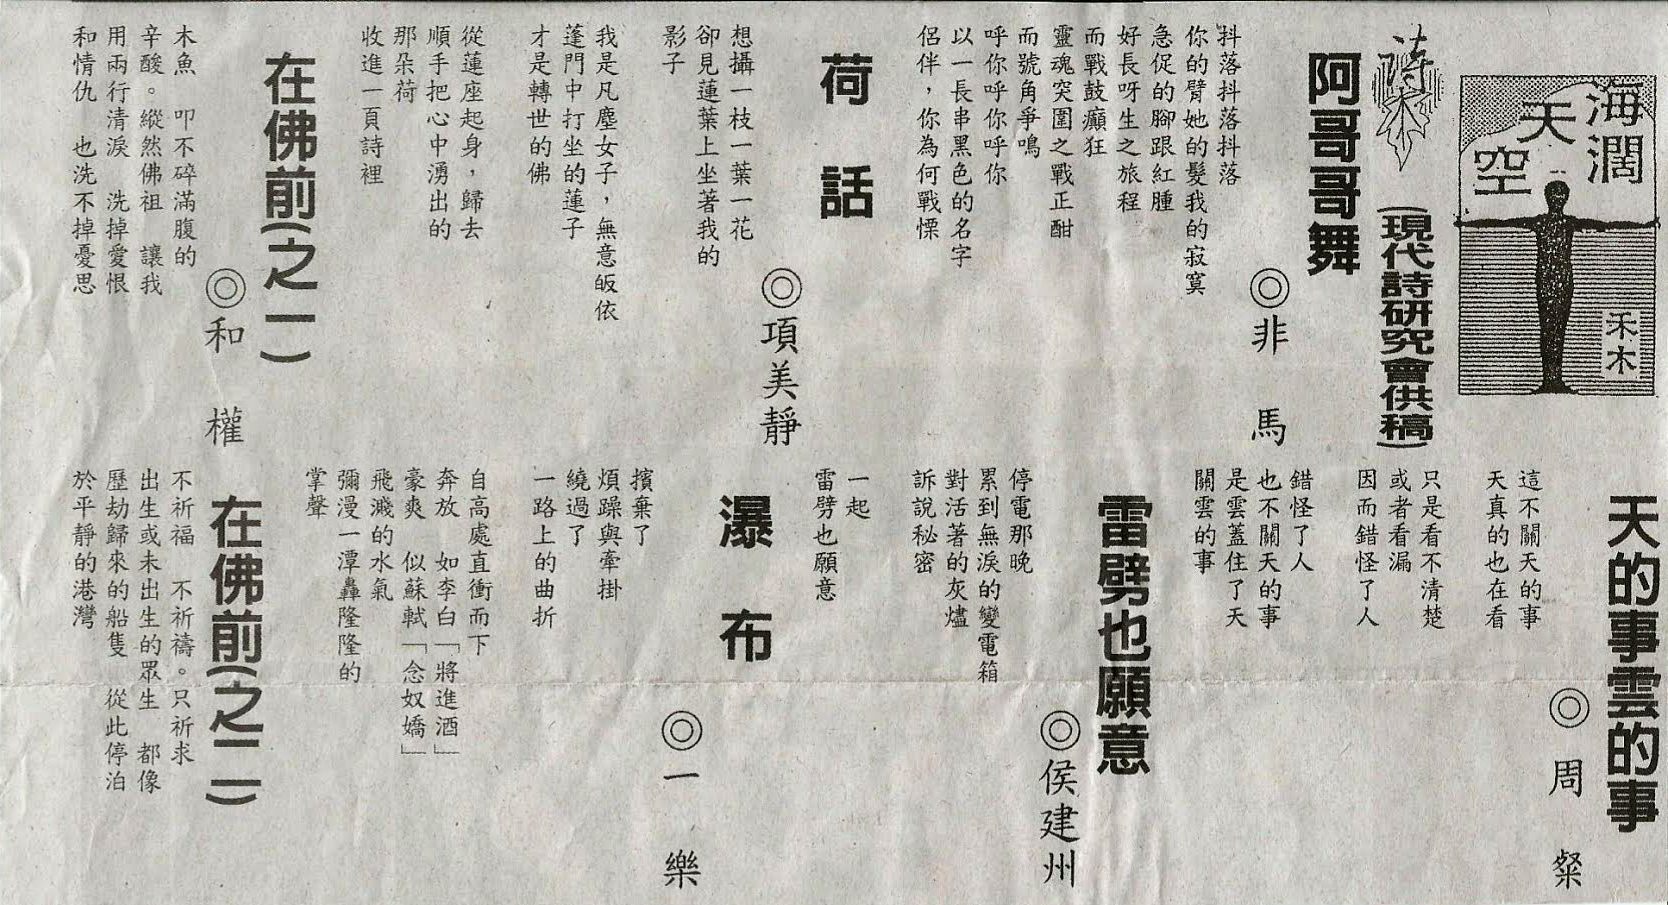 海闊
天
空
禾木
詩
(現代詩研究會供稿)
阿哥哥舞
◎非　馬
抖落抖落抖落
你的臂她的髮我的寂寞
急促的腳跟紅腫
好長呀生之旅程
而戰鼓癲狂
靈魂突圍之戰正酣
而號角爭鳴
呼你呼你呼你
以一長串黑色的名字
侶伴，你為何戰慄
荷　話
◎項美靜
想攝一枝一葉一花
卻見蓮葉上坐著我的
影子
我是凡塵女子，無意皈依
蓬門中打坐的蓮子
才是轉世的佛
從蓮座起身，歸去
順手把心中湧出的
那朵荷
收進一頁詩裡
在佛前(之一)
◎和　權
木魚　叩不碎滿腹的
辛酸。縱然佛祖　讓我
用兩行清淚　洗掉愛恨
和情仇　也洗不掉憂思
天的事雲的事
◎周　粲
這不關天的事
天真的也在看
只是看不清楚
或者看漏
因而錯怪了人
錯怪了人
也不關天的事
是雲蓋住了天
關雲的事
雷劈也願意
◎侯建州
停電那晚
累到無淚的變電箱
對活著的灰燼
訴說秘密
一起
雷劈也願意
瀑　布
◎一　樂
擯棄了
煩躁與牽掛
繞過了
一路上的曲折
自高處直衝而下
奔放　如李白「將進酒」
豪爽　似蘇軾「念奴嬌」
飛濺的水氣
彌漫一潭轟隆隆的
掌聲
在佛前(之二)
不祈福　不祈禱。只祈求
出生或未出生的眾生　都像
歷劫歸來的船隻　從此停泊
於平靜的港灣